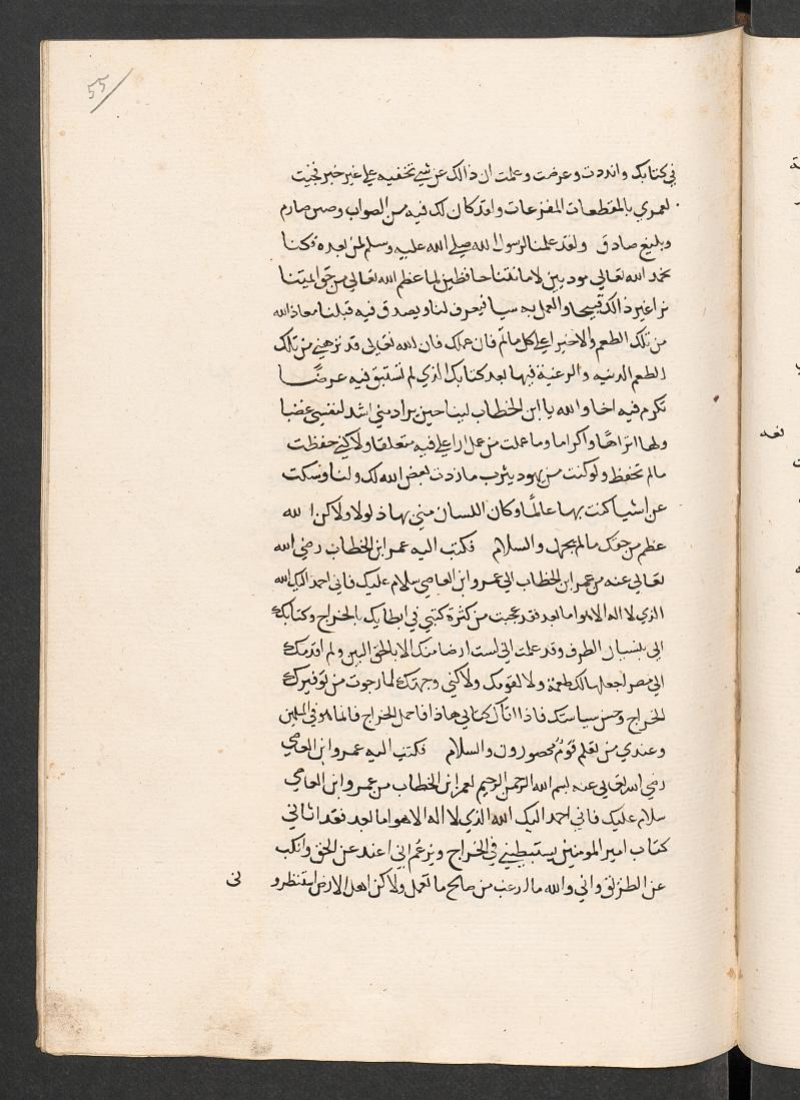 55
في كتابك وانددت وعرضت وعلمت ان ذالك عن شي تخفيه علي غير خبر فجيت
لعمري بالمقطعات المفزعات واقد كان لك فيه من الصواب وصين صارم
وبليغ صادق ولقد عملنا لرسول الله صلي الله عليه وسلم لمن بعده فكنا
بحمد الله تعالي موديين لامانتنا حافظين لما عظم الله تعالي من حق ايمتنا
نرا غير ذالك قبيحا والعمل به سيا فيعرف لنا ويصدق فيه قبلنا معاذ الله
من تلك الطعم والاجترا علي كل ماثم فان عملك فان الله تعالي قد نزهني من تلك
الطعم الدنيه والرغبة فيها بعد كتابك الذي لم تستبق فيه عرضا
تكرم فيه اخا والله يا ابن الخطاب لينا حين يراد مني اشد لنفسي غضبا
ولها انزاها واكراما وما عملت من عمل ارا علي فيه متعلقا ولاكني حفظت
مالم تحفظ ولو كنت من يهود يثرب ما زدت بعض الله لك ولنا وسكت
عن اشيا كنت بها عالما وكان اللسان مني بها ذلولا ولاكن الله
عظم من حقك مالم يجهل والسلام فكتب اليه عمر ابن الخطاب رضي الله
تعالي عنه من عمر ابن الخطاب الي عمرو ابن العاصي سلام عليك فاني احمد اليك الله
الذي لا اله الا هو اما بعد فقد عجبت من كثرة كتبي في ابطايك بالخراج وكتابك
الي بنسيال الطرق وقد علمت اني لست ارضا منك الا بالحق البين ولم اقدمك
الي مصر اجعلها لك طعمة ولا لقومك ولاكني وجهتك لما رجوت من توفيرك
للخراج وحسن سياستك فاذا اتاك كتابي هاذا فاحمل الخراج فانما هو في المسلمين
وعندي من تعلم قوم محصورون والسلام فكتب اليه عمرو ابن العاصي
رضي الله تعالي عنه بسم الله الرحمن الرحيم لعمر ابن الخطاب من عمرو ابن العاصي
سلام عليك فاني احمد اليك الله الذي لا اله الا هو اما بعد فقد اتاني
كتاب امير المومنين يستبطيني في الخراج ويزعم اني اعند عن الحق وانكب
عن الطريق واني والله ما ارغب من صالح ما تعمل ولاكن اهل الارض استنظرو
ني